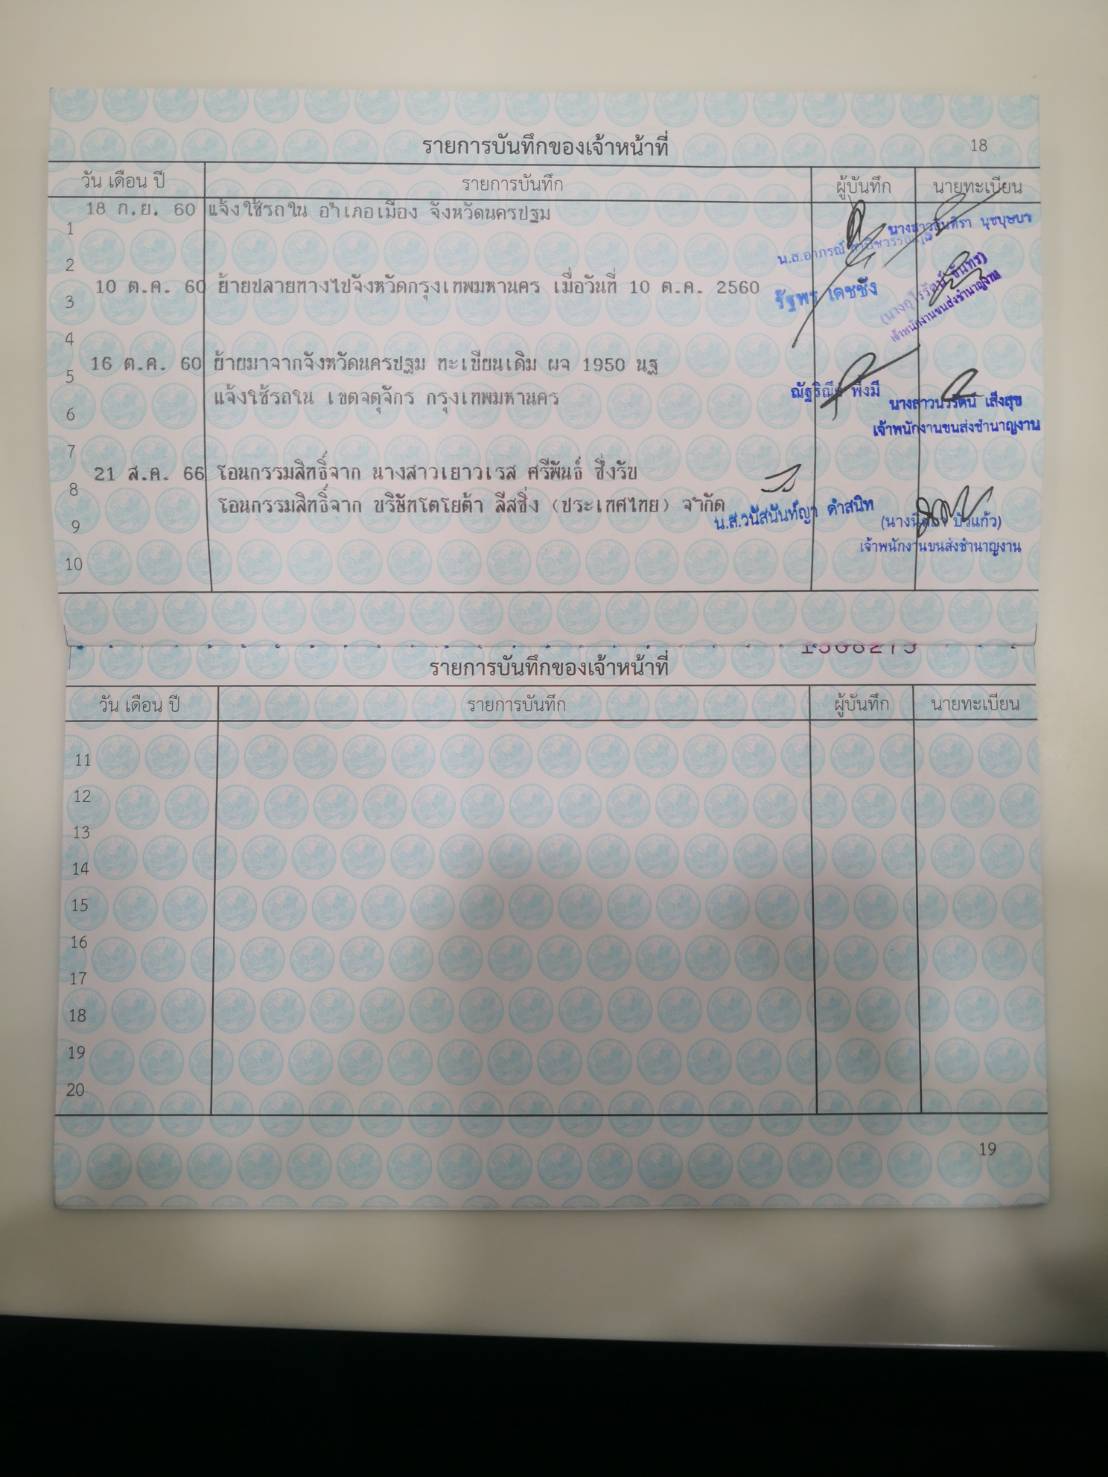 รายการบันทึกของเจ้าหน้าที่ 18
วัน เดือน ปี รายการบันทึก ผู้บันทึก นายทะเบียน
1 18 ก.ย. 60 แจ้งใช้รถใน อำเภอเมือง จังหวัดนครปฐม
นุชบุษบา
น.ส.อาภรณ์
2
3 10 ต.ค. 60 ย้ายปลายทางไปจังหวัดกรุงเทพมหานคร เมื่อวันที่ 10 ต.ค. 2560
รัฐพร เดชชัง
เจ้าพนักงานขนส่งชำนาญงาน
4
5 16 ต.ค. 60 ย้ายมาจากจังหวัดนครปฐม ทะเบียนเดิม ผจ 1950 นฐ
6 แจ้งใช้รถใน เขตจตุจักร กรุงเทพมหานคร
พึ่งมี
นางสาวนวรัตน์ เส็งสุข
เจ้าพนักงานขนส่งชำนาญงาน
7
8 21 ส.ค. 66 โอนกรรมสิทธิ์จาก นางสาวเยาวเรส ศรีพันธ์ ซึ่งรับ
9 โอนกรรมสิทธิ์จาก บริษัทโตโยต้า ลีสซิ่ง (ประเทศไทย) จำกัด
น.ส.วนัสนันท์ญา คำสนิท
บัวแก้ว)
เจ้าพนักงานขนส่งชำนาญงาน
10
รายการบันทึกของเจ้าหน้าที่
วัน เดือน ปี รายการบันทึก ผู้บันทึก นายทะเบียน
11
12
13
14
15
16
17
18
19
20
19